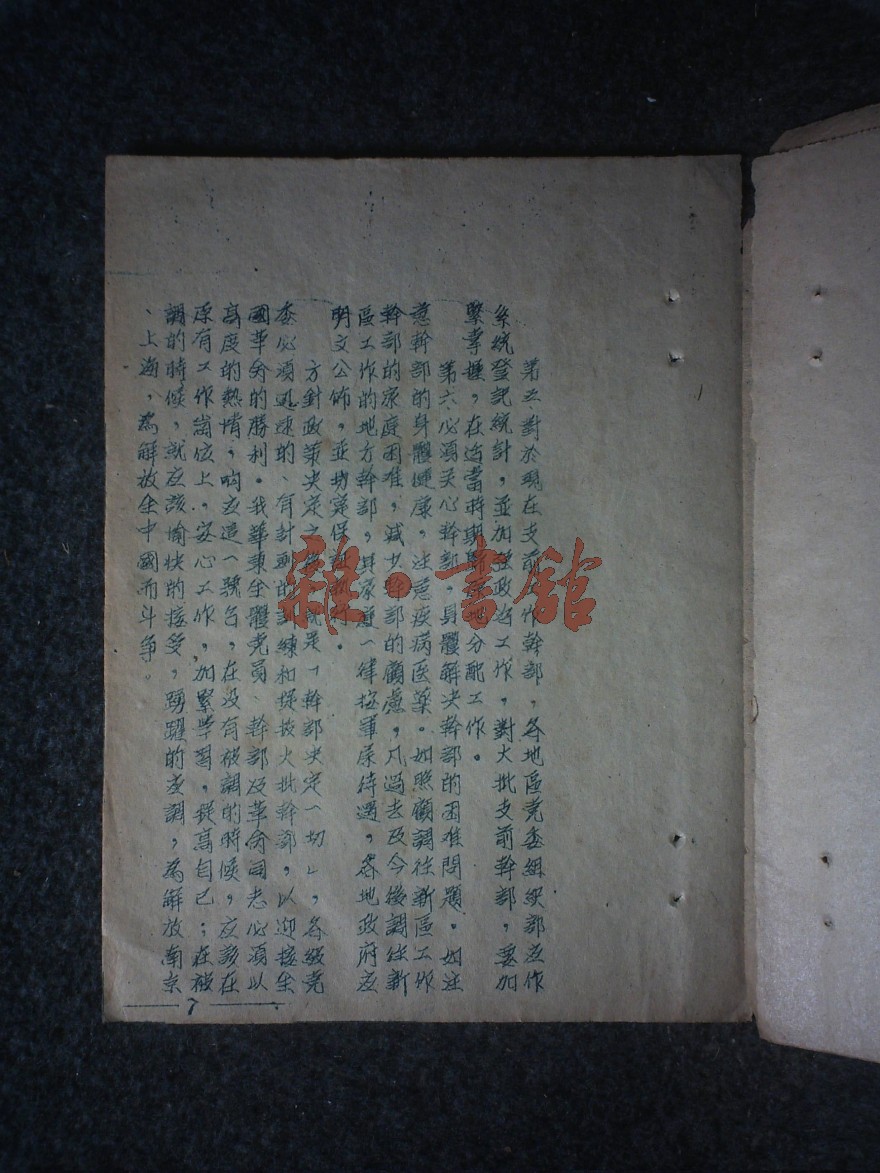 第五、對於現在支前工作幹部，各地區党委組织部应作
系統登記統計，並加强政治工作，對大批支前幹部，要加
緊掌握，在适當時期地分配工作。
第六必須关心幹部，具體解决幹部的困难問題。如注
意幹部的身體健康，注意疾病医藥。如照顧調往新區工作
幹部的家庭困难，减少幹部的顧慮，凡過去及今後調往新
區工作的地方幹部，其家庭一律按軍属待遇，各地政府应
明文公佈，並切实保証执行。
方針政策决定之後，就是「幹部决定一切」，各級党
委必須迅速的、有計劃的訓練和提拔大批幹部，以迎接全
國革命的勝利。我華東全體党员、幹部及革命同志必須以
高度的热情，响应這一號召，在没有被調的時候，应該在
原有工作崗位上，安心工作，加緊學習，提高自己；在被
調的時候，就应該愉快的接受，踴躍的应調，為解放南京
、上海，為解放全中國而斗争。
7
雜·書舘